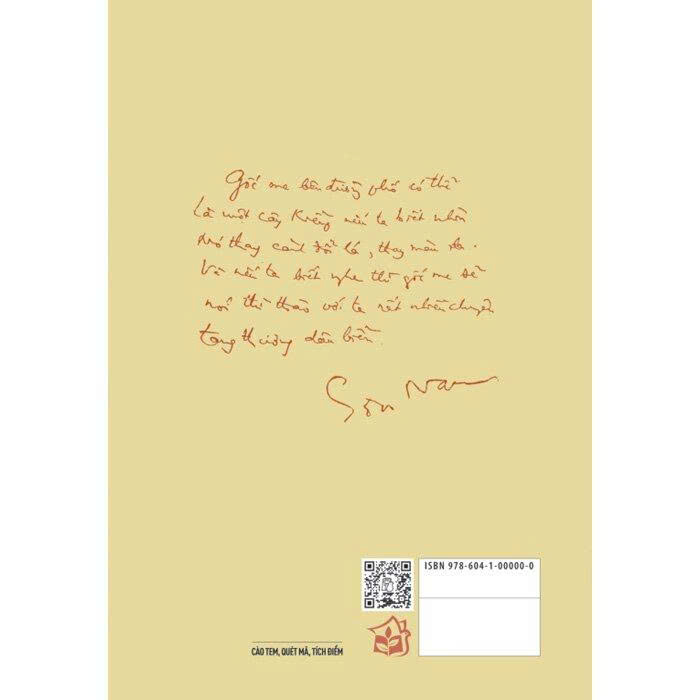 Gốc me bên đường phố có thể
là một cây kiểng nếu ta biết nhìn
nó thay cành đổi lá, thay màu da.
Và nếu ta biết nghe thì gốc me sẽ
nói thì thào với ta rất nhiều chuyện
tang thương dâu biển.
Sơn Nam
ISBN 978-604-1-00000-0
CÀO TEM, QUÉT MÃ, TÍCH ĐIỂM